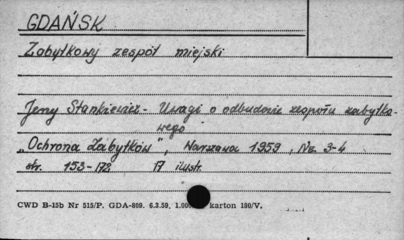 GDAŃSK
Zabytkowy zespół miejski
Jerzy Stankiewicz - Uwagi o odbudowie zespołu zabytko-
wego
"Ochrona Zabytków", Warszawa 1959, Nr. 3-4
str. 153-178 17 ilustr.
CWD B-15b Nr 515/P. GDA-809. 6.3.59, 1.000 karton 180/V.